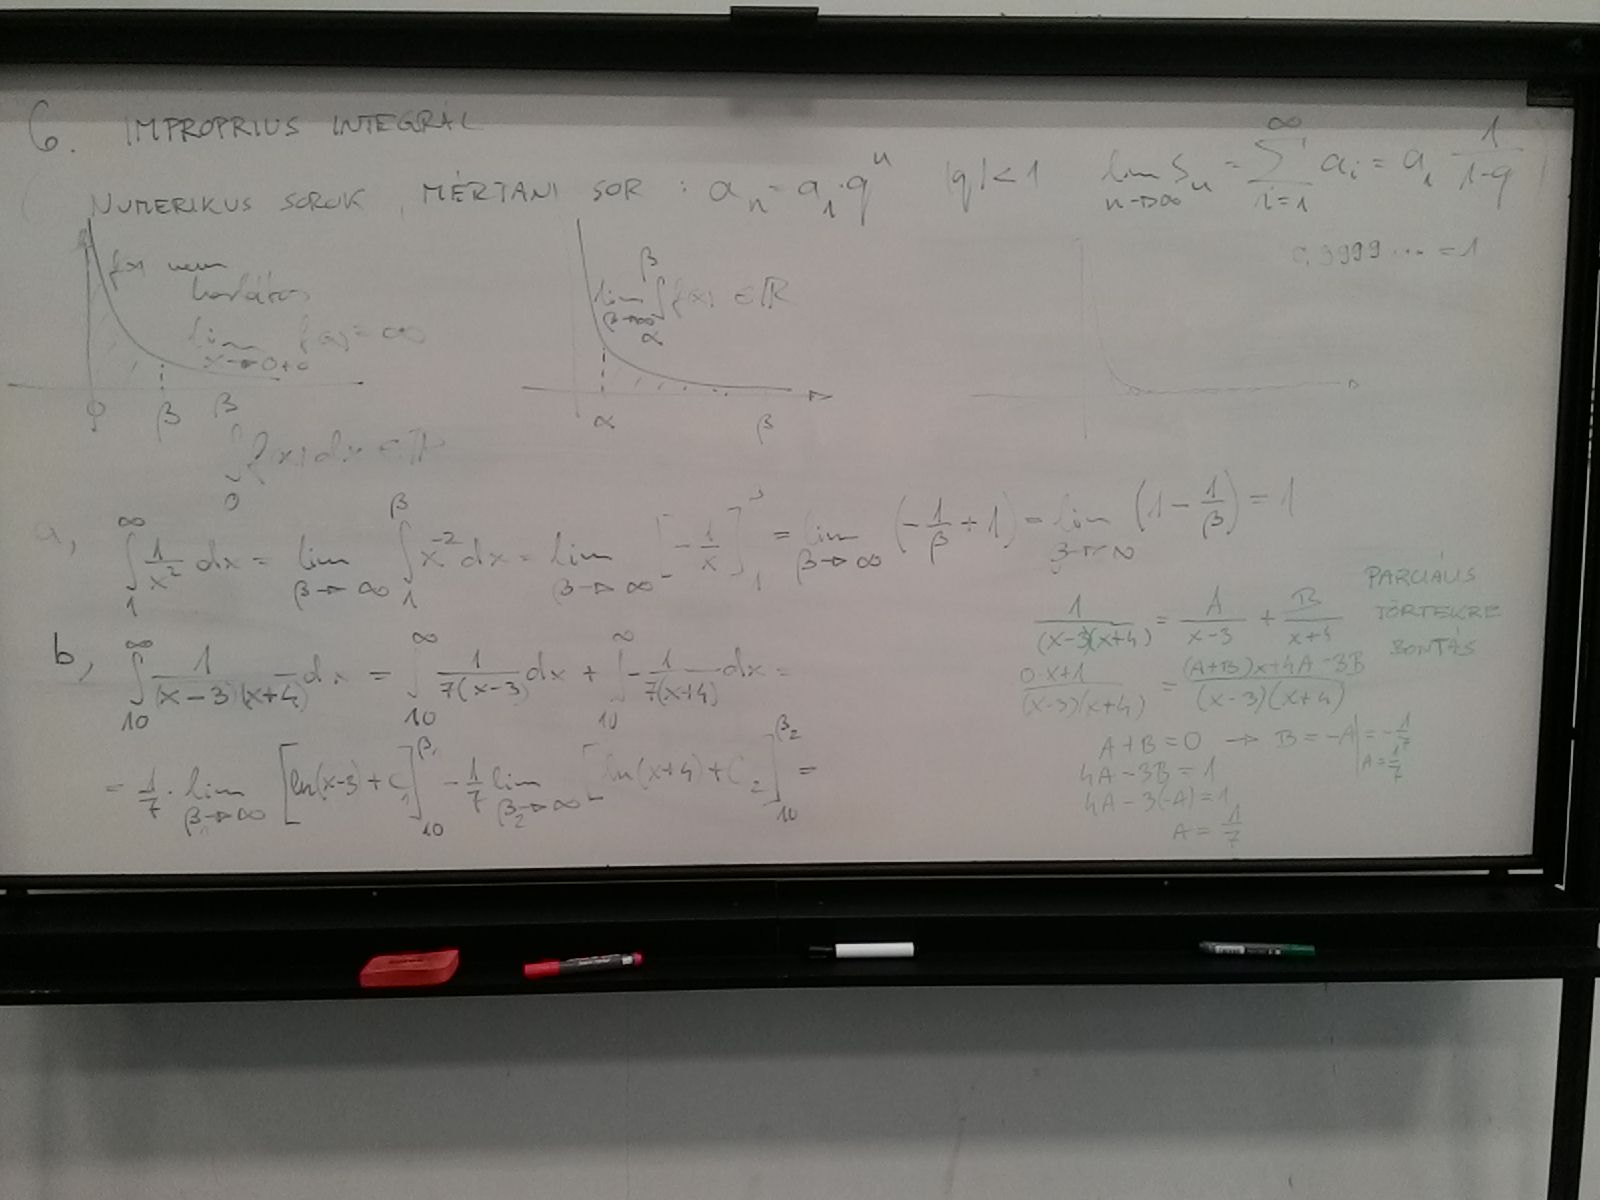 6. IMPROPRIUS INTEGRÁL
NUMERIKUS SOROK, MÉRTANI SOR : a_n = a_1 · q^n |q| < 1 lim_{n→∞} S_n = ∑_{i=1}^{∞} a_i = a_1 1/(1-q)
0,9999... = 1
f(x) nem
korlátos
lim_{x→0+0} f(x) = ∞
0 β
∫_0^β f(x) dx ∈ ℝ
lim_{β→∞} ∫_α^β f(x) ∈ ℝ
α β
a, ∫_1^∞ 1/x² dx = lim_{β→∞} ∫_1^β x^{-2} dx = lim_{β→∞} [-1/x]_1^β = lim_{β→∞} (-1/β + 1) = lim_{β→∞} (1 - 1/β) = 1
b, ∫_{10}^∞ 1/((x-3)(x+4)) dx = ∫_{10}^∞ 1/(7(x-3)) dx + ∫_{10}^∞ -1/(7(x+4)) dx =
= 1/7 · lim_{β_1→∞} [ln(x-3) + C_1]_{10}^{β_1} - 1/7 lim_{β_2→∞} [ln(x+4) + C_2]_{10}^{β_2} =
PARCIÁLIS
TÖRTEKRE
BONTÁS
1/((x-3)(x+4)) = A/(x-3) + B/(x+4)
(0·x+1)/((x-3)(x+4)) = ((A+B)x+4A-3B)/((x-3)(x+4))
A+B=0 → B=-A|_{A=1/7} = -1/7
4A-3B=1
4A-3(-A)=1
A = 1/7